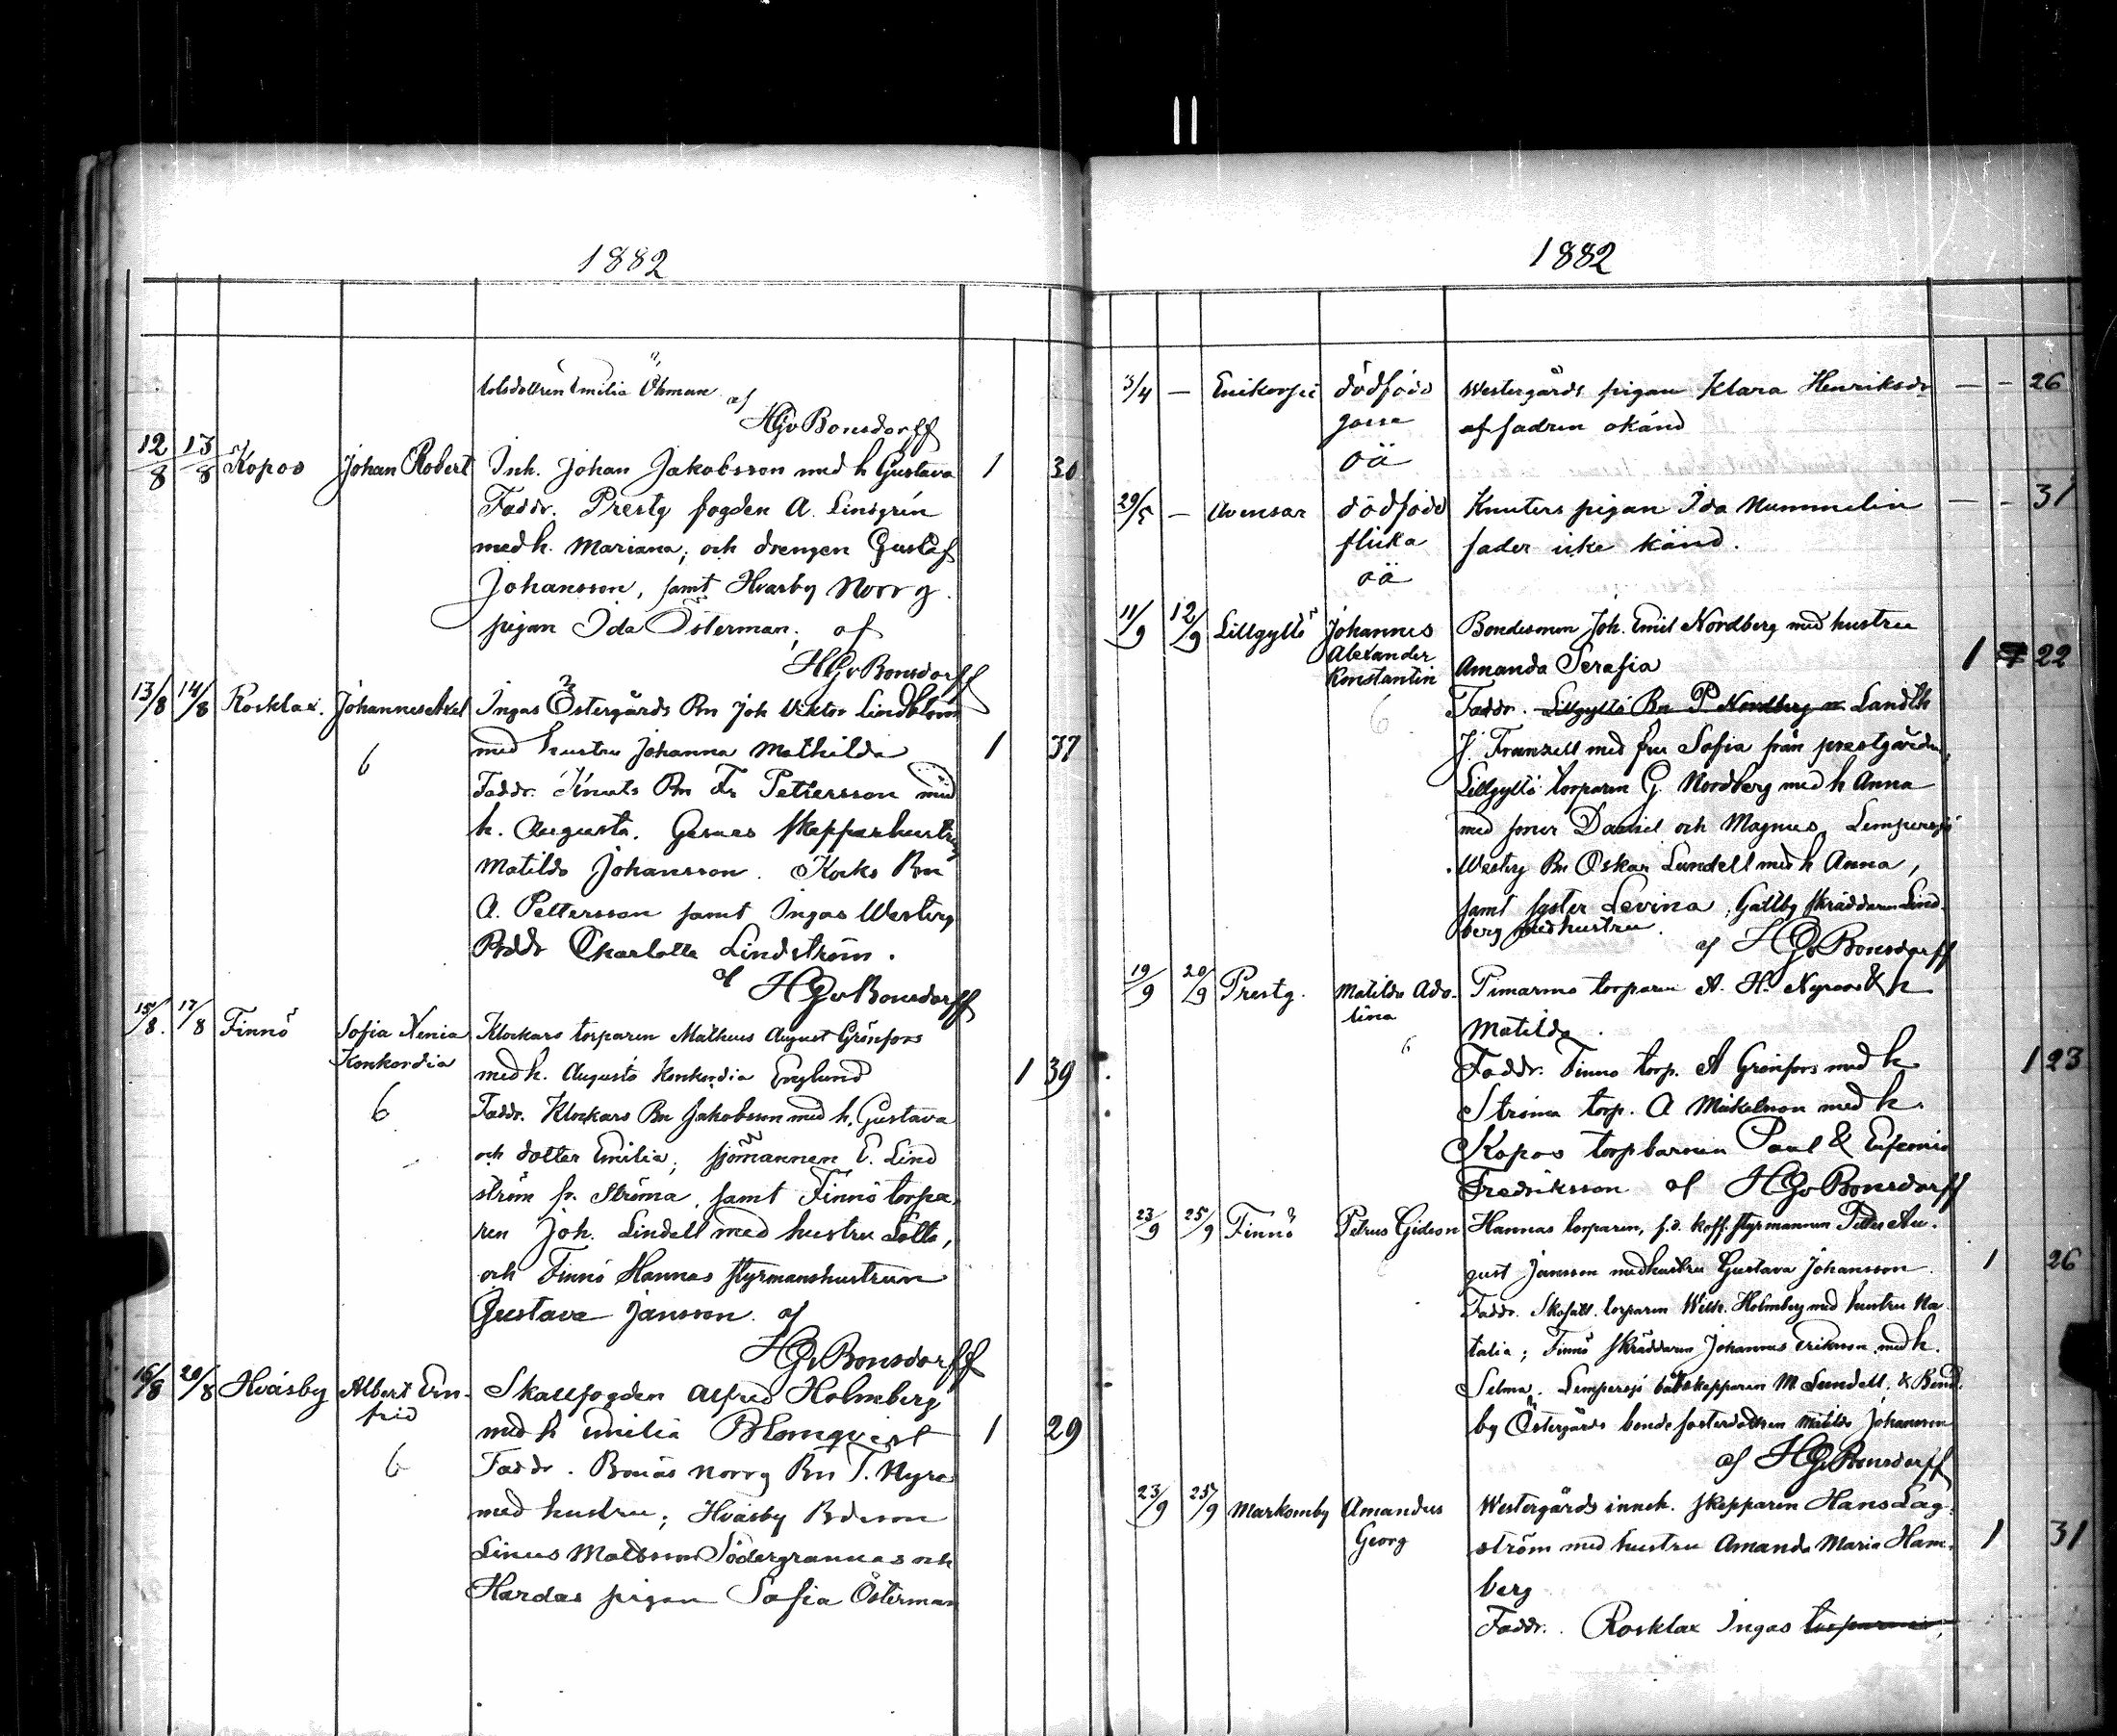 1882
dolsdottren Emilia Öhman
af
HGvBonsdorff
12/8 13/8 Kopos Johan Robert Inh. Johan Jakobsson med h Gustava 1 30
Faddr. Prestg fogden A. Lindgrén
med h. Mariana; och drengen Gustaf
Johansson, samt Hvarby Norrg.
pigan Ida Österman; af
HGvBonsdorff
13/8 14/8 Rosklax. Johannes Axel Ingas Östergårds Bn Joh Viktor Lindblom
med hustru Johanna Mathilda 1 37
6
Faddr. Knuts Bn Fr Pettersson med
h. Augusta. Gernas skepparhustrun
Matilda Johansson. Kocks Bn
A. Pettersson samt Ingas Westerg
Bddr Charlotta Lindström.
af HGvBonsdorff
15/8. 17/8 Finnö Sofia Xenia Klockars torparen Matheus August Grönfors
Konkordia med h. Augusta Konkordia Englund 1 39
6 Faddr. Klockars Bn Jakobsson med h. Gustava
och dotter Emilia; sjömannen E. Lind
ström fr. Ströma, samt Finnö torpa-
ren Joh. Lindell med hustru Lotta,
och Finnö Hannas styrmanshustrun
Gustava Jansson. af
HGvBonsdorff
16/8 20/8 Hvåsby Albert Ern- Skallfogden Alfred Holmberg
frid med h Emilia Blomqvist 1 29
6 Faddr. Bonäs Norrg Bn T. Nyro
med hustru; Hvåsby Bdeson
Linus Mattsson Södergrannas och
Hardas pigan Sofia Österman
1882
3/4 — Enikorpi dödfödd Westergårds pigan Klara Henriksdr — — 26
gosse af fadren okänd
oä
29/5 — Avensar dödfödd Knuters pigan Ida Nummelin — — 31
flicka fader icke känd.
oä
11/9 12/9 Lillgyltö Johannes Bondesonen Joh. Emil Nordberg med hustru
Alexander
Konstantin Amanda Serafia 1 22
6 Faddr. Lillgyltö Bn P Nordberg Landth
J. Franzell med fru Sofia från prestgården,
Lillgyltö torparen G. Nordberg med h Anna
med söner Daniel och Magnus, Lempersjö
Westerg Bn Oskar Lundell med h Anna,
samt syster Levina, Gällby skräddaren Lind-
berg med hustru.
af HGvBonsdorff
19/9 20/9 Prestg. Matilda Ado- torparen A. H. Nyroos & h
lina Matilda.
6
Faddr. Finnö torp. A Grönfors med h 1 23
Ströma torp. A Mickelsson med h.
Kopos torpbarnen Paul & Eufemia
Fredriksson af HGvBonsdorff
23/9 25/9 Finnö Petrus Gideon Hannas torparen, f.d. koff. styrmannen Petter Au-
gust Jansson med hustru Gustava Johansson. 1 26
6
Faddr. Skofält. torparen Wilh. Holmberg med hustru Na-
talia; Finnö skräddaren Johannes Eriksson med h.
Selma. Lempersjö båtskepparen M Lundell. & Bend-
by Östergårds bonde fosterdottren Matilda Johansson
af HGvBonsdorff
23/9 25/9 Markomby Amandus Westergårds inneh. skepparen Hans Lag-
Georg ström med hustru Amanda Maria Ham- 1 31
berg
Faddr. Rosklax Ingas torparen